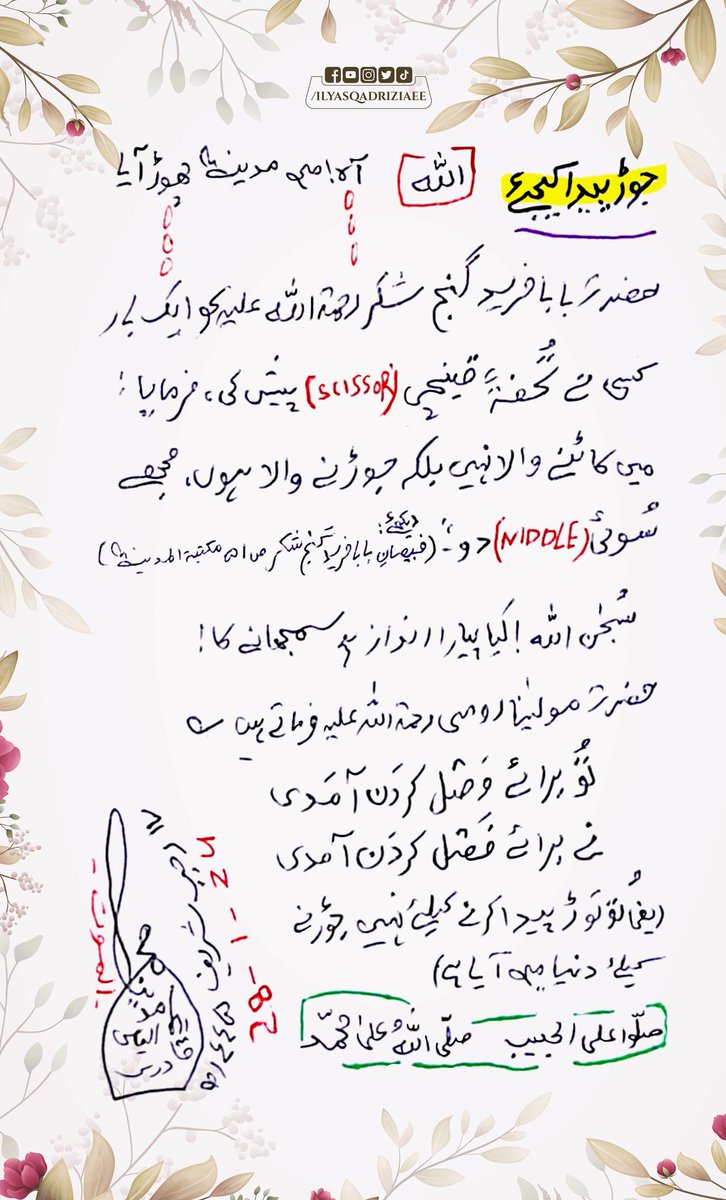 /ILYASQADRIZIAEE
جوڑ پیدا کیجئے
اللہ
آہ! میں مدینہ چھوڑ آیا
حضرت بابا فرید گنج شکر رحمۃ اللہ علیہ کو ایک بار
کسی نے تُحفۃً قینچی (SCISSOR) پیش کی، فرمایا:
میں کاٹنے والا نہیں بلکہ جوڑنے والا ہوں، مجھے
سُوئی (NIDDLE) دو۔ (دیکھئے: فیضانِ بابا فرید گنج شکر ص مکتبۃ المدینہ)
سُبحٰن اللہ! کیا پیارا انداز ہے سمجھانے کا!
حضرت مولیٰنا رومی رحمۃ اللہ علیہ فرماتے ہیں
تُو برائے وَصْل کردَن آمَدی
نے برائے فَصْل کردَن آمدی
(یعنی تُو توڑ پیدا کرنے کیلئے نہیں، جوڑنے
کیلئے دنیا میں آیا ہے)
صلّوا علی الحبیب صلّی اللہُ علیٰ محمّد
الموت
28-1-24